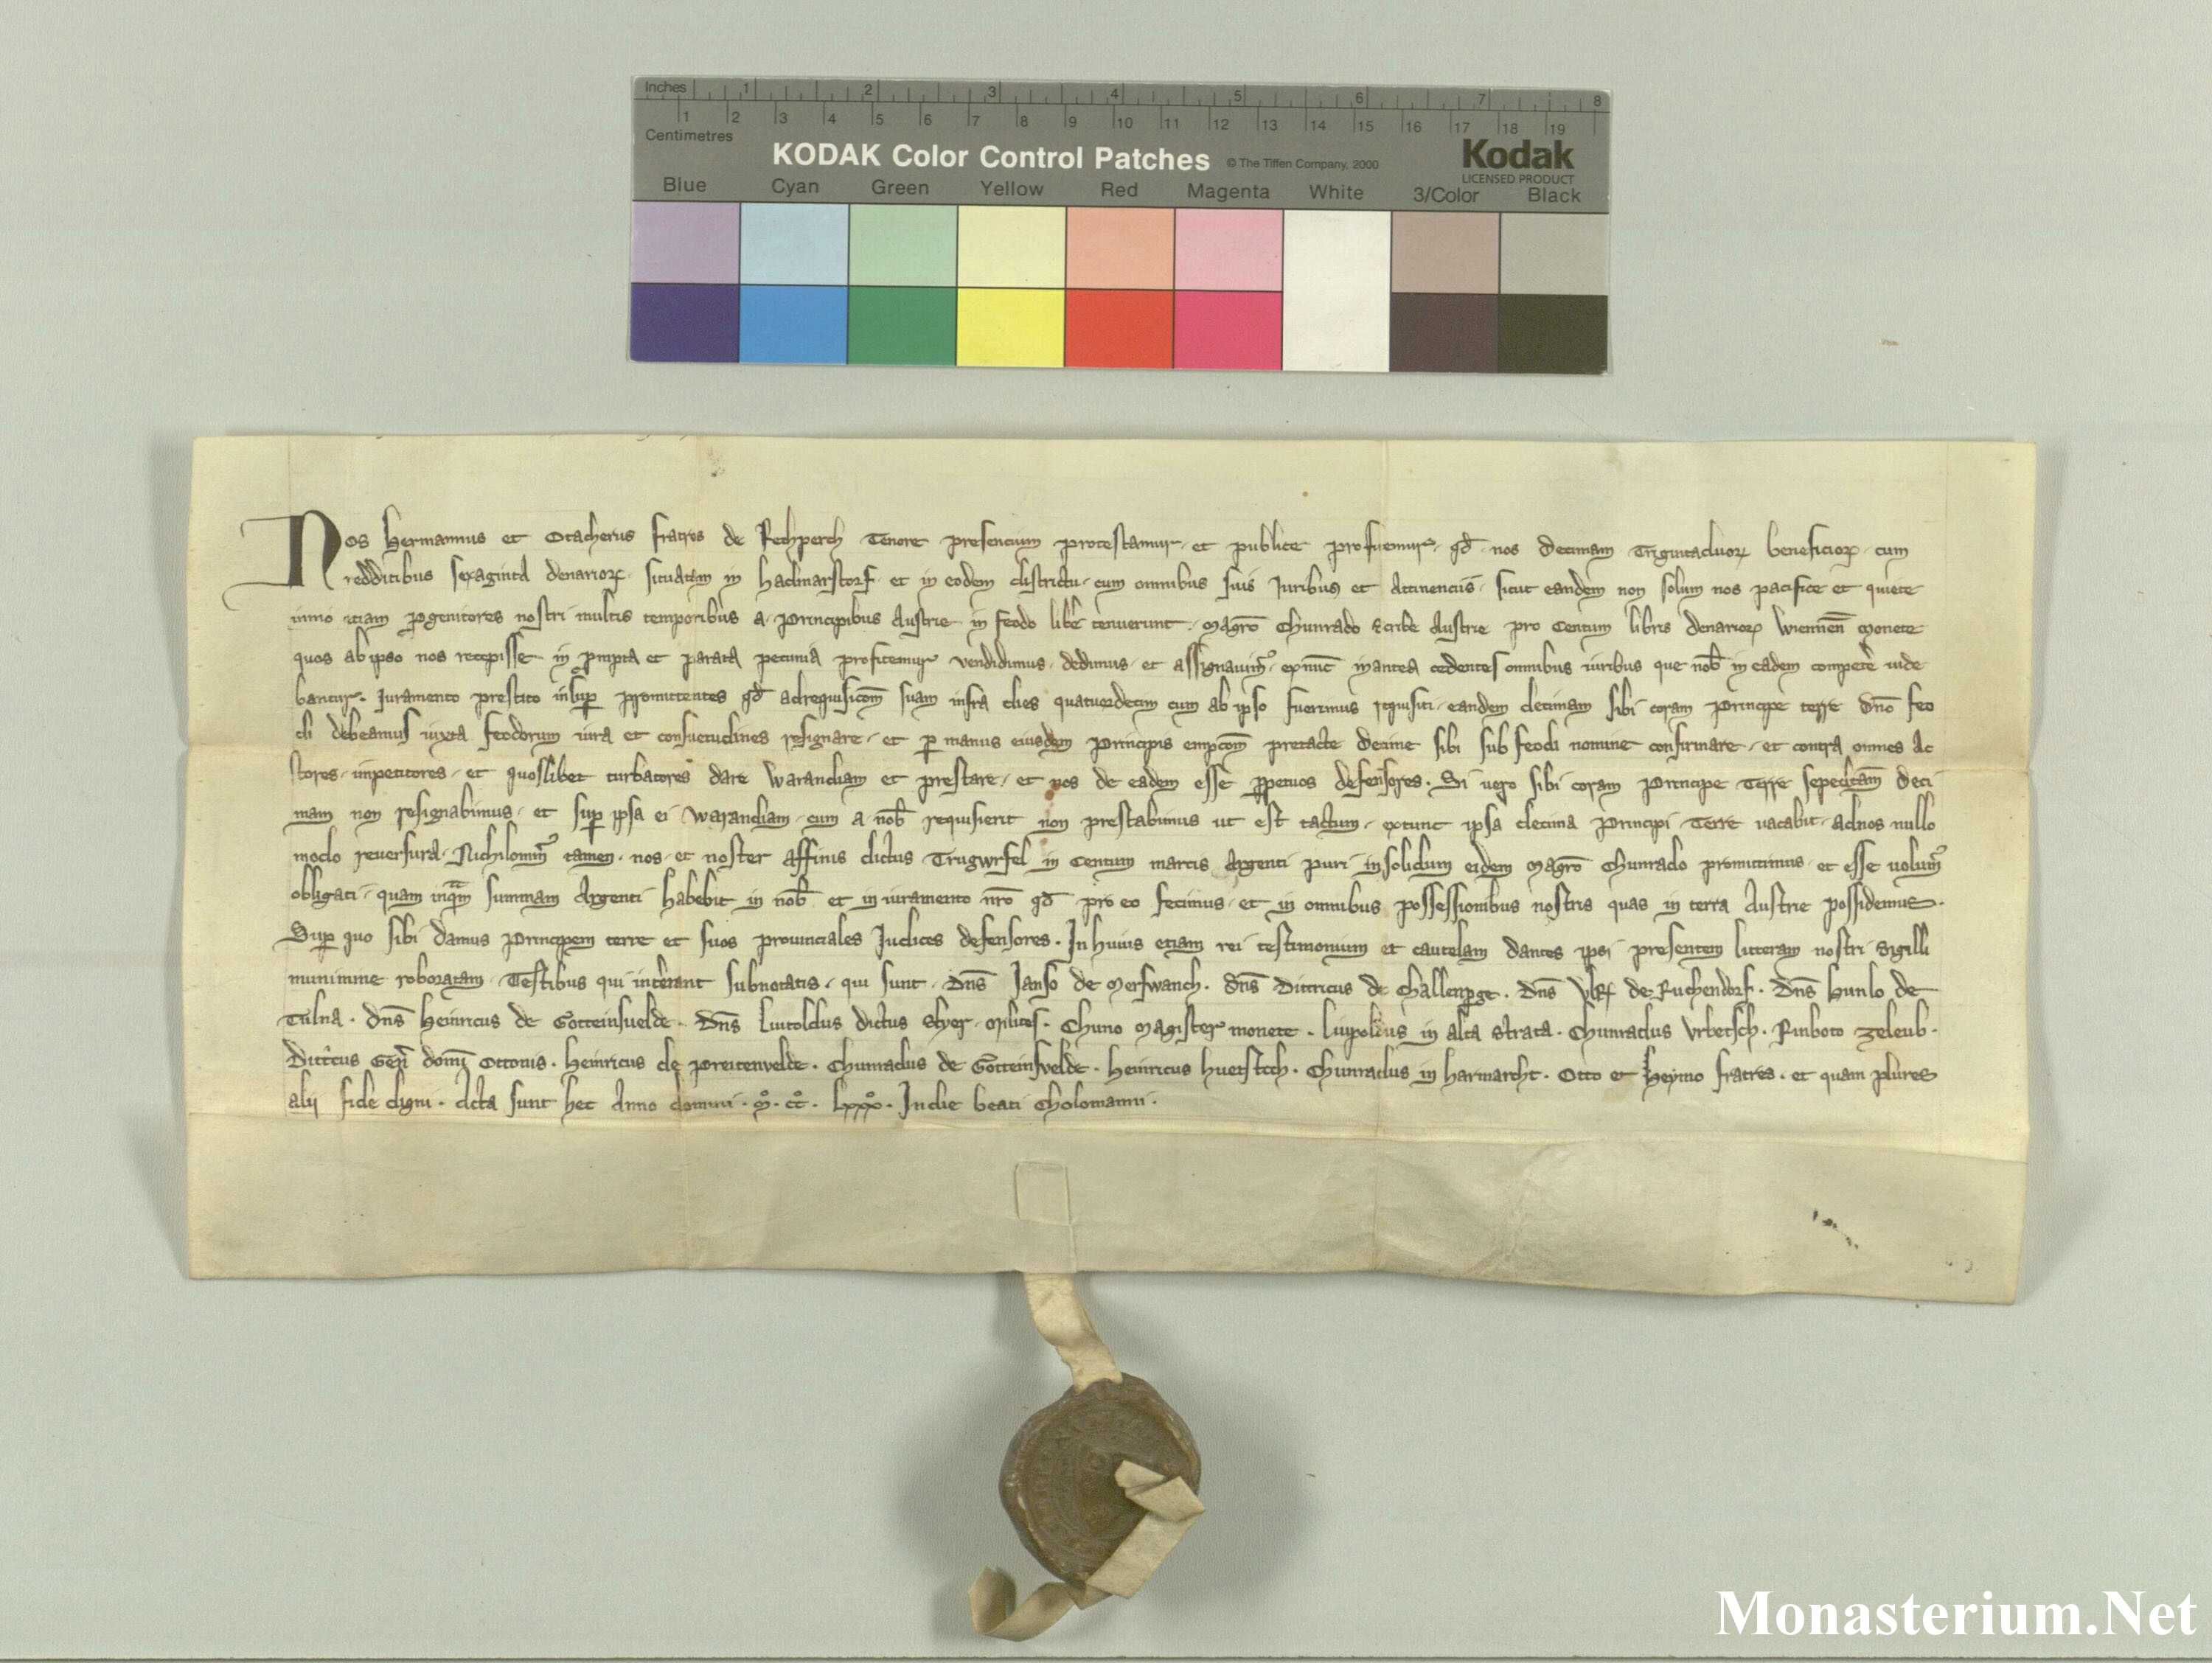 Inches 1 2 3 4 5 6 7 8
1 2 3 4 5 6 7 8 9 10 11 12 13 14 15 16 17 18 19
Centimetres
KODAK Color Control Patches © The Tiffen Company, 2000 Kodak
LICENSED PRODUCT
Blue Cyan Green Yellow Red Magenta White 3/Color Black
Nos Hermannus et Otacherus fratres de Rechperch Tenore presencium protestamur et publice profitemur qd nos decimam Trigintaduorꝝ beneficiorꝝ cum
redditibus sexaginta denariorꝝ situatam in Hadmarstorf et in eodem districtu cum omnibus suis Iuribus et Attinenciis sicut eandem non solum nos pacifice et quiete
immo etiam ꝓgenitores nostri multis temporibus a principibus Austrie in feodo libe tenuerunt magro Chunrado scribe Austrie pro Centum libris denariorꝝ Wiennen monete
quos ab ipso nos recepisse in prompta et parata pecunia profitemur vendidimus dedimus et assignauim exnunc inantea cedentes omnibus iuribus que nob in eadem compete uide
bantur. Iuramento prestito insuꝑ promittentes qd adrequisicom suam infra dies quatuordecim cum ab ipso fuerimus requisiti eandem decimam sibi coram principe terre dno feo
di debeamus iuxta feodorum iura et consuetudines resignare et ꝑ manus eiusdem principis empcom pretacte decime sibi sub feodi nomine confirmare et contra omnes Ac
tores inpetitores et quoslibet turbatores dare Warandiam et prestare et nos de eadem esse ꝑpetuos defensores. Si uero sibi coram principe Terre sepedictam deci
mam non resignabimus et suꝑ ipsa ei Warandiam cum a nob requisierit non prestabimus ut est tactum extunc ipsa decima principi Terre uacabit adnos nullo
modo reuersura. Nichilomin tamen nos et noster affinis dictus Trugwrfel in Centum marcis Argenti puri insolidum eidem magro Chunrado promittimus et esse uolum
obligati quam inqam summam Argenti habebit in nob et in iuramento nro qd pro eo fecimus et in omnibus possessionibus nostris quas in terra Austrie possidemus.
Suꝑ quo sibi damus principem terre et suos prouinciales Iudices defensores. In huius etiam rei testimonium et cautelam dantes ipsi presentem litteram nostri sigilli
munimine roboratam Testibus qui interant subnotatis qui sunt Dns Ianso de Merswanch. dns Ditricus de Challenꝑge. Dns Vlr de Ruchendorf. Dns Hunlo de
Tulna. dns Heinricus de Gotteinsuelde. Dns Liutoldus dictus Styer milites. Chuno magister monete. Liupoldus in alta strata. Chunradus Vrbetsch. Rinboto zeleub.
Dittcus Gen domi Ottonis. Heinricus de preitenuelde. Chunradus de Gotteinsvelde. Heinricus Chunradus in harmarcht. Otto et Heymo fratres. et quam plures
alij fide digni. Acta sunt hec Anno domini. M. cc. lxxx. In die beati Cholomanni.
Monasterium.Net